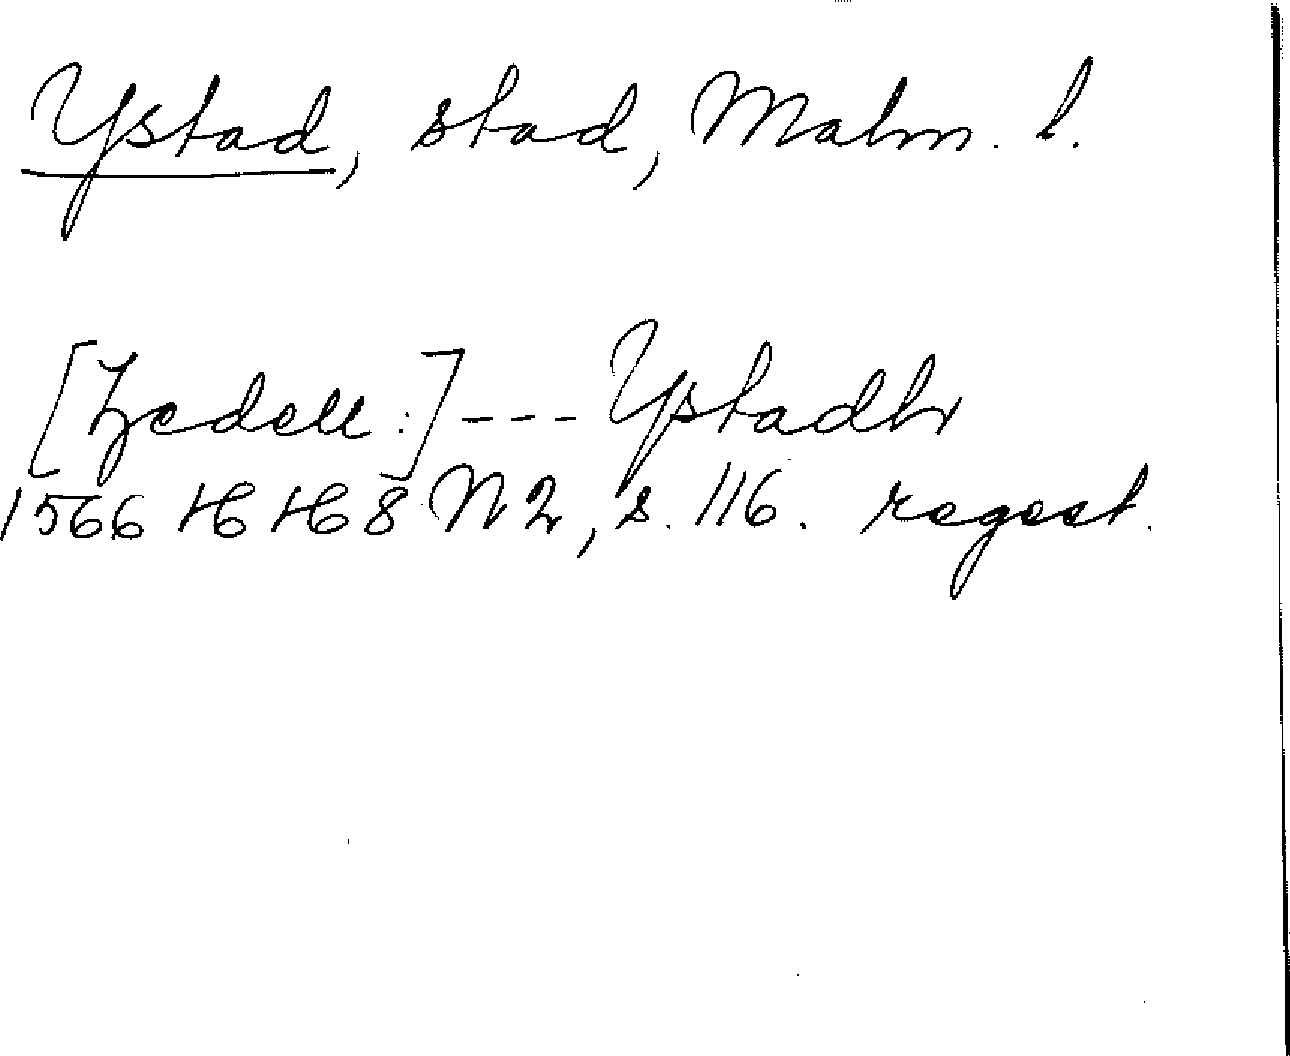 Ystad, stad, Malm. l.
[Zedell:] --- Ystadh
1566 HH 8 N 2, s. 116. regest.